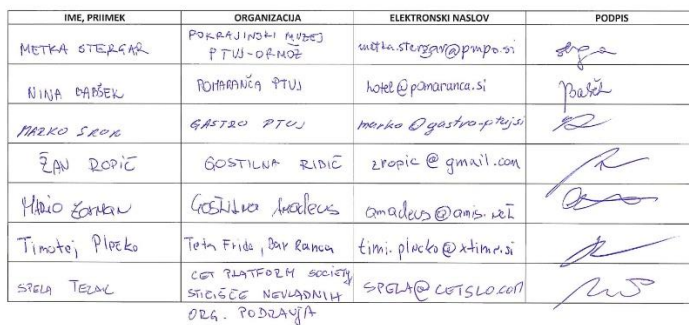 IME, PRIIMEK ORGANIZACIJA ELEKTRONSKI NASLOV PODPIS
METKA STERGAR POKRAJINSKI MUZEJ PTUJ-ORMOŽ metka.stergar@pmpo.si
NINA POMARANČA PTUJ hotel@pomaranca.si
MARKO GASTRO PTUJ marko@gastro-ptuj.si
ŽAN ROPIČ GOSTILNA RIDIČ zropic@gmail.com
MARIO GOSTILNA Amadeus amadeus@amis.net
Timotej Plečko Teta Frida, Bar Ranca
SPELA TEZAK CET PLATFORM SOCIETY, STIČIŠČE NEVLADNIH ORG. PODRAVJA SPELA@CETSLO.COM